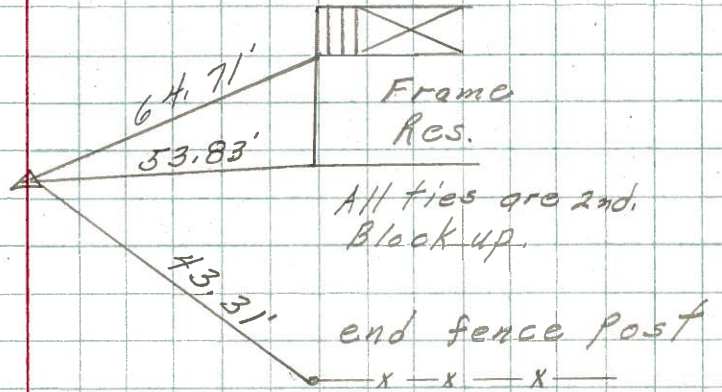 64.71'
Frame
Res.
53.83'
All ties are 2nd.
Block up.
43.31'
end fence post
x x x